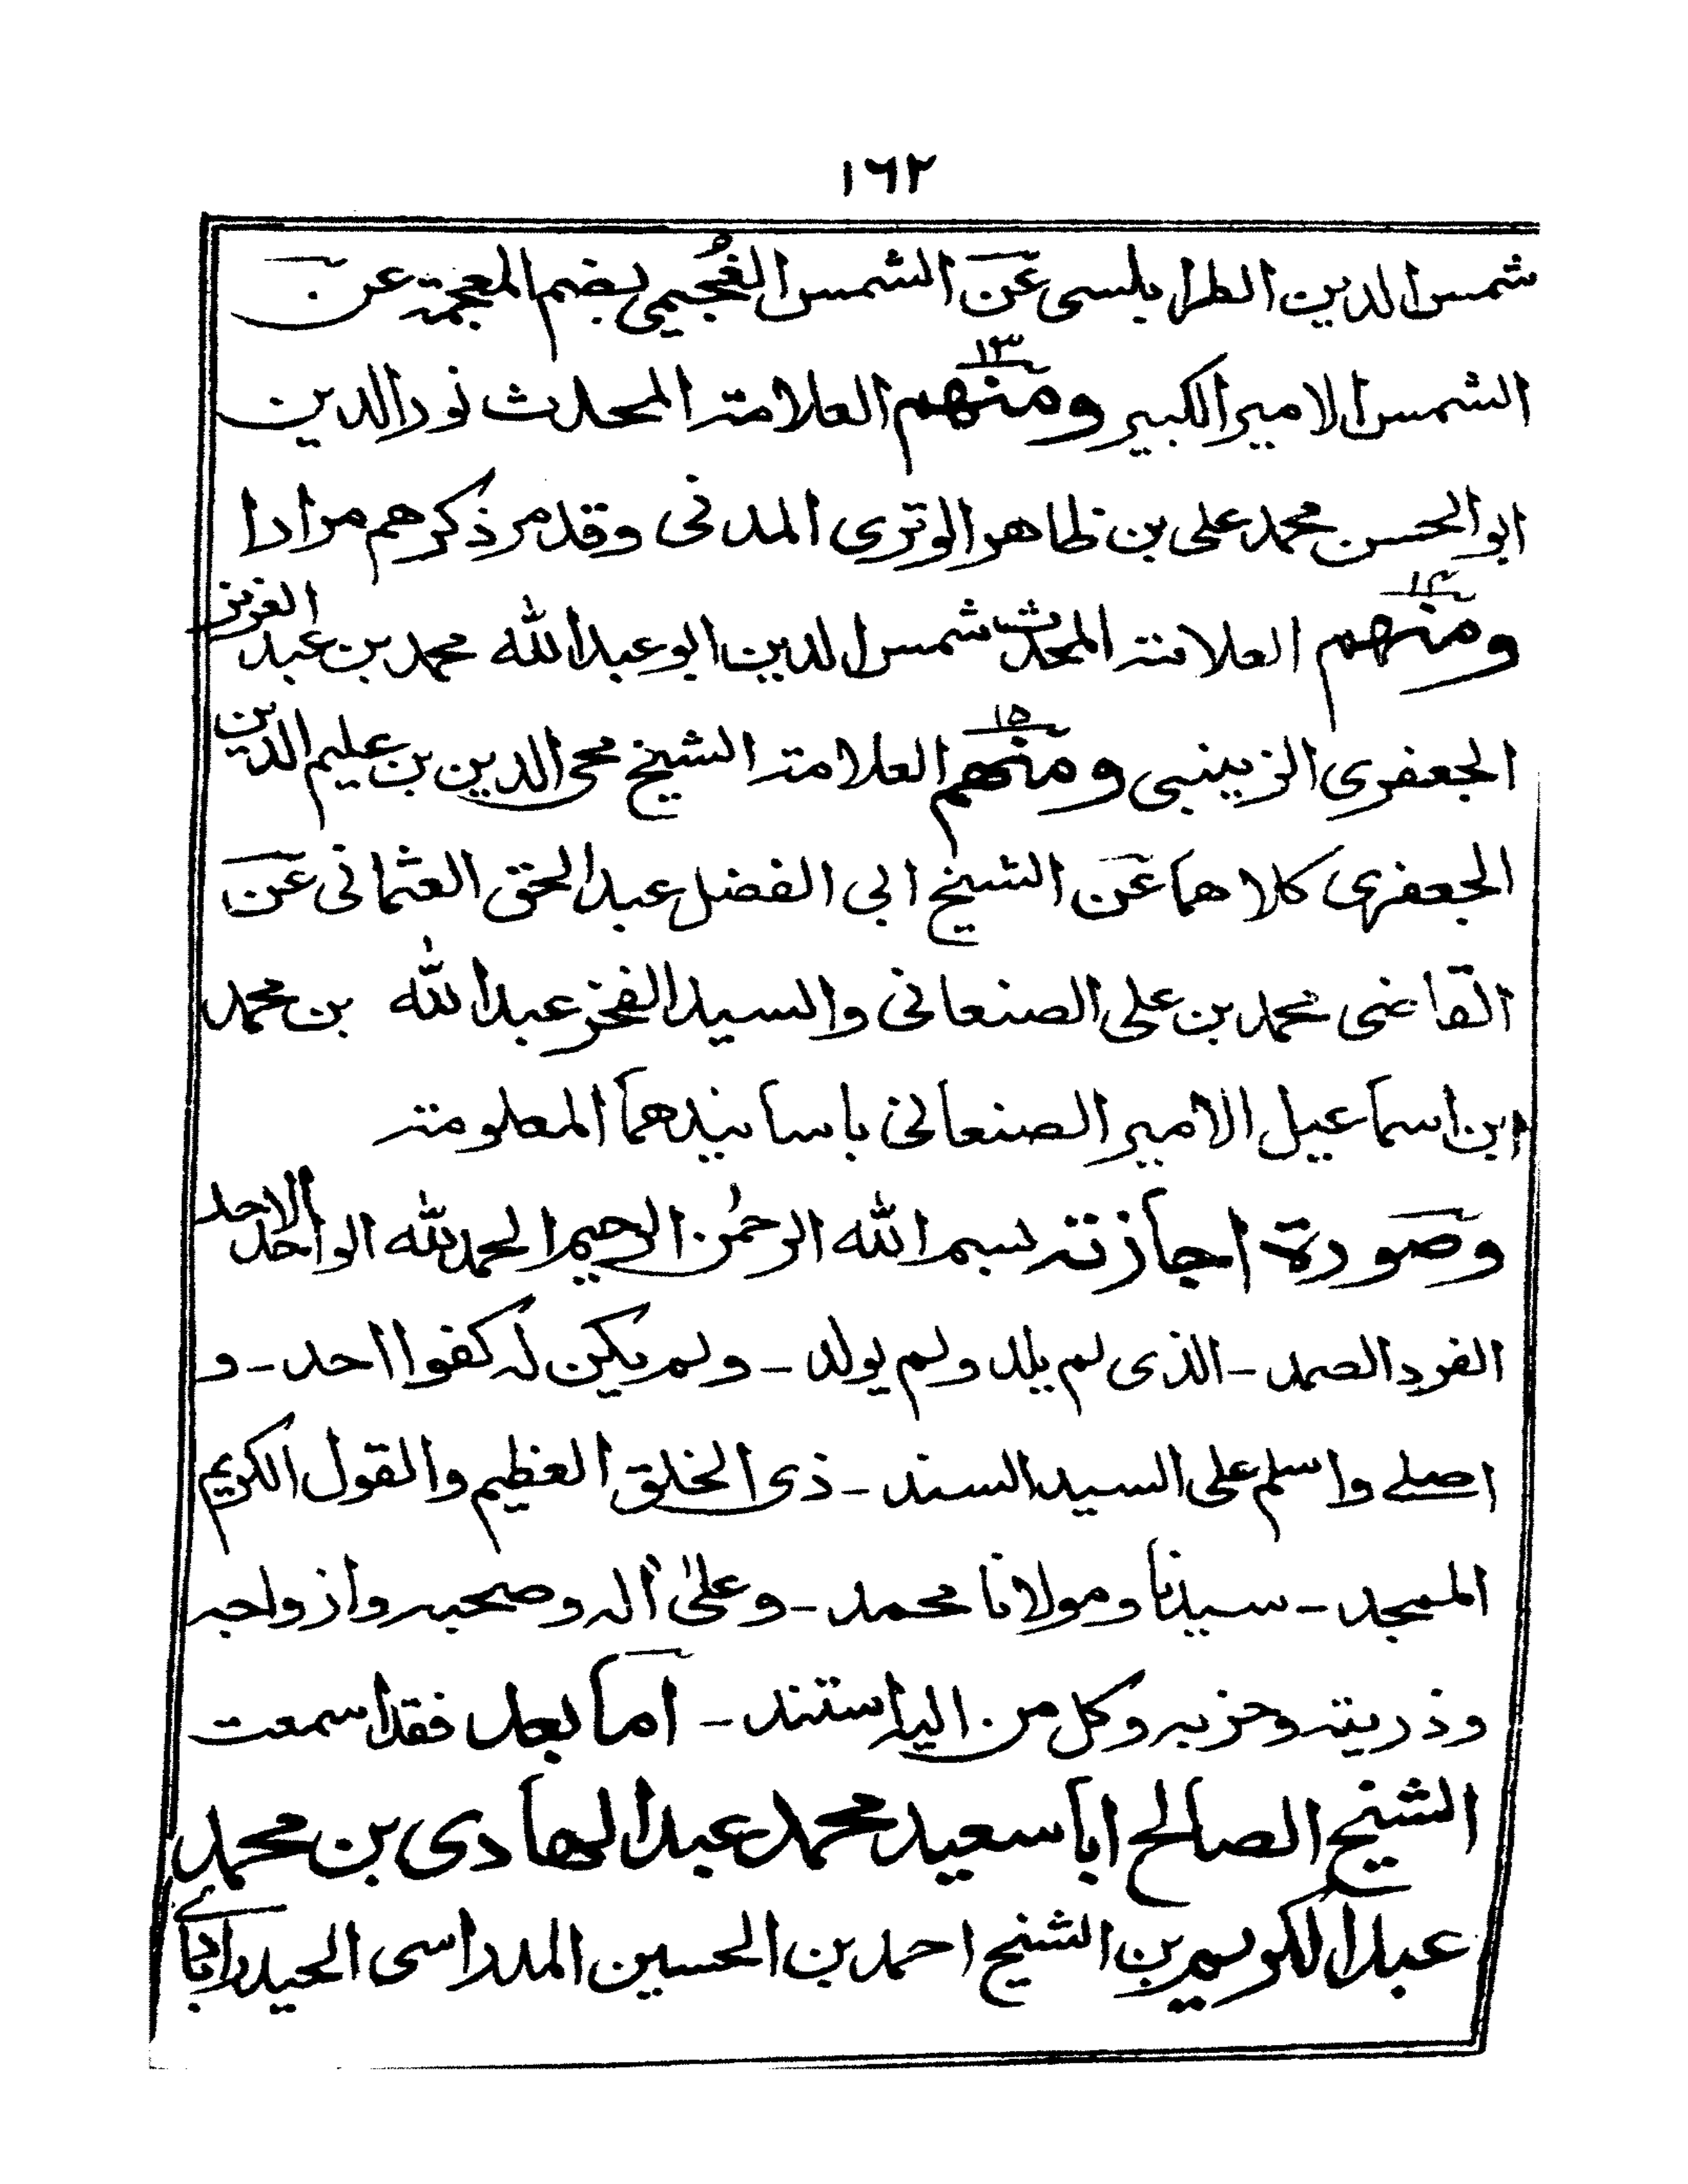 ١٦٢
شمس الدين الطرابلسى عن الشمس الغُجيمى بضم المعجمة عن
١٣
الشمس الامير الكبير ومنهم العلامة المحدث نور الدين
ابو الحسن محمد على بن ظاهر الوترى المدنى وقد مر ذكرهم مرارا
١٤
ومنهم العلامة المحدث شمس الدين ابو عبد الله محمد بن عبد العزيز
١٥
الجعفرى الزينبى ومنهم العلامة الشيخ محى الدين بن عليم الدين
الجعفرى كلاهما عن الشيخ ابى الفضل عبد الحق العثمانى عن
القاضى محمد بن على الصنعانى والسيد الفخر عبد الله بن محمد
ابن اسماعيل الامير الصنعانى باسانيدهما المعلومة
وصورة اجازته بسم الله الرحمٰن الرحيم الحمد لله الواحد الاحد
الفرد الصمد - الذى لم يلد ولم يولد - ولم يكن له كفوا احد - و
اصلے واسلم على السيد السند - ذى الخلق العظيم والقول الكريم
الممجد - سيدنا ومولانا محمد - وعلىٰ اٰله وصحبه وازواجه
وذريته وحزبه وكل من اليه استند - اما بعد فقد اسمعت
الشيخ الصالح ابا سعيد محمد عبد الهادى بن محمد
عبد الكريم بن الشيخ احمد بن الحسين المدراسى الحيدرابادے